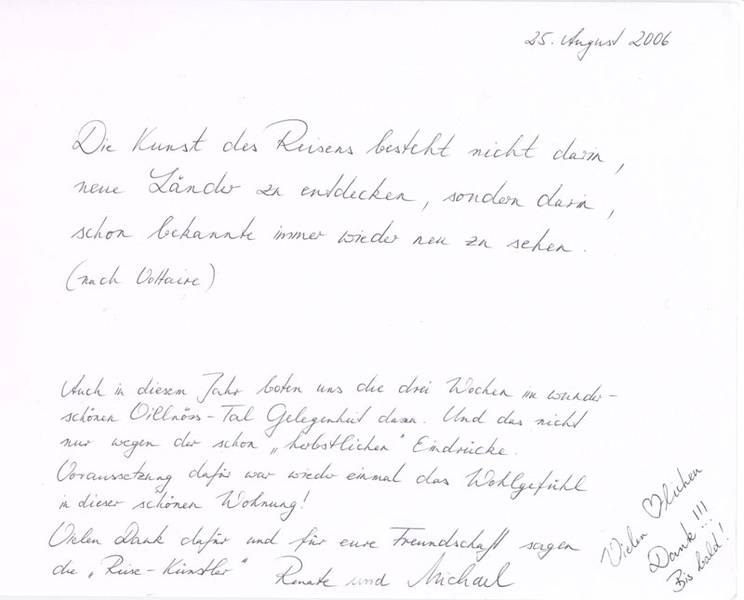 25. August 2006
Die Kunst des Reisens besteht nicht darin,
neue Länder zu entdecken, sondern darin,
schon bekannte immer wieder neu zu sehen.
(nach Voltaire)
Auch in diesem Jahr boten uns die drei Wochen im wunder-
schönen Villnöss-Tal Gelegenheit dazu. Und das nicht
nur wegen der schon „herbstlichen" Eindrücke.
Voraussetzung dafür war wieder einmal das Wohlgefühl
in dieser schönen Wohnung!
Vielen Dank dafür und für eure Freundschaft sagen
die „Reise-Künstler" Renate und Michael
Vielen ♡lichen
Dank!!!
Bis bald!